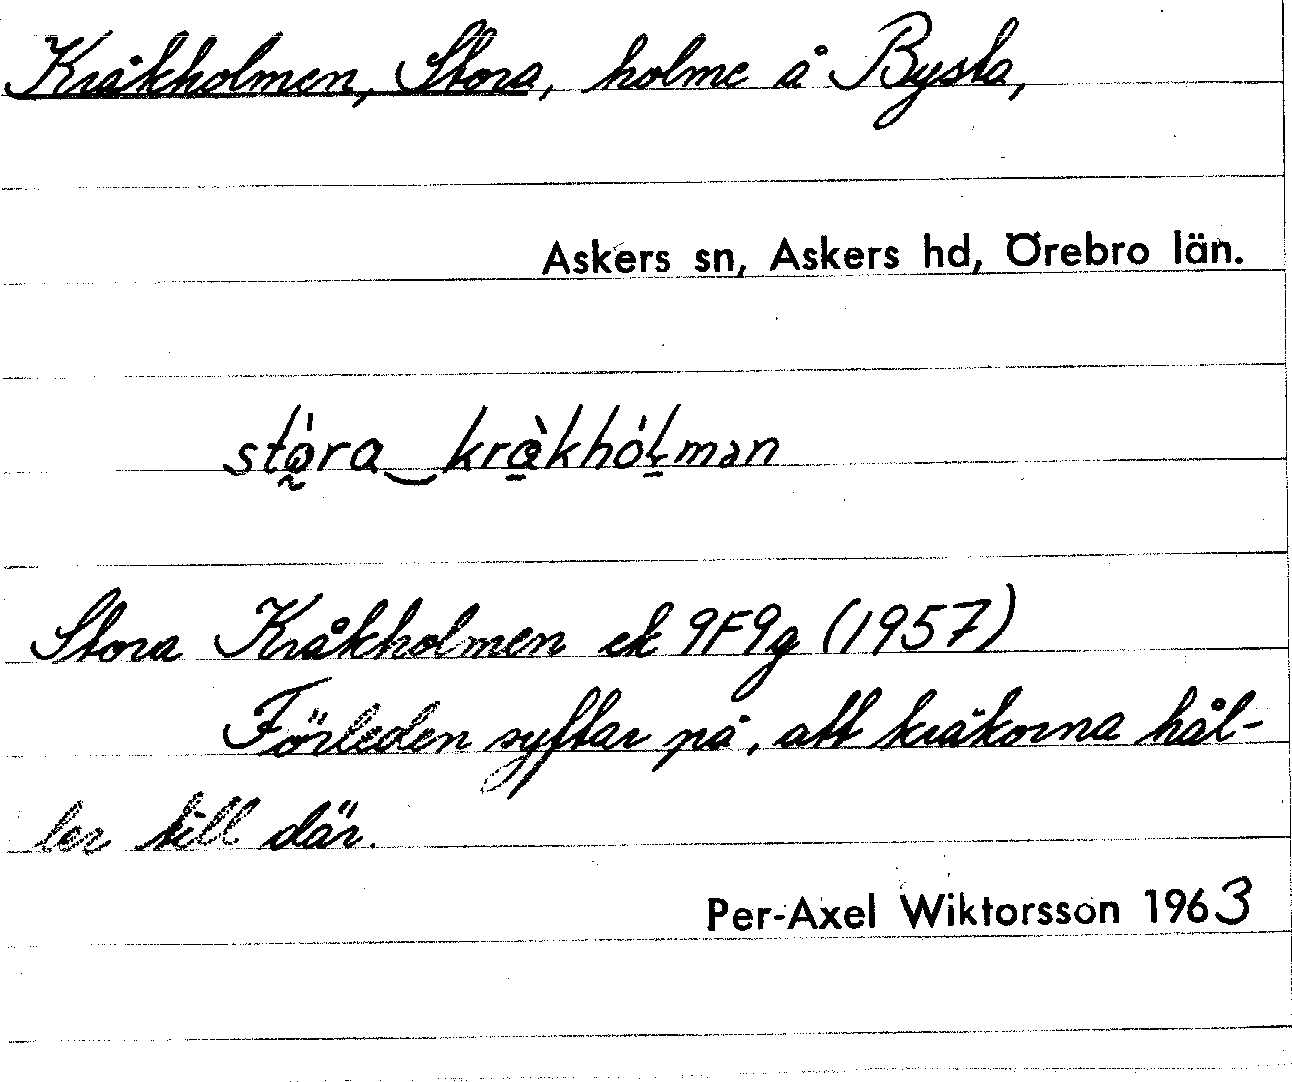 Kråkholmen, Stora, holme å Bysta,
Askers sn, Askers hd, Örebro län.
stò̰ra‿krò̱khóḻmən
Stora Kråkholmen ek 9F9g (1957)
Förleden syftar på, att kråkorna hål-
ler till där.
Per-Axel Wiktorsson 1963